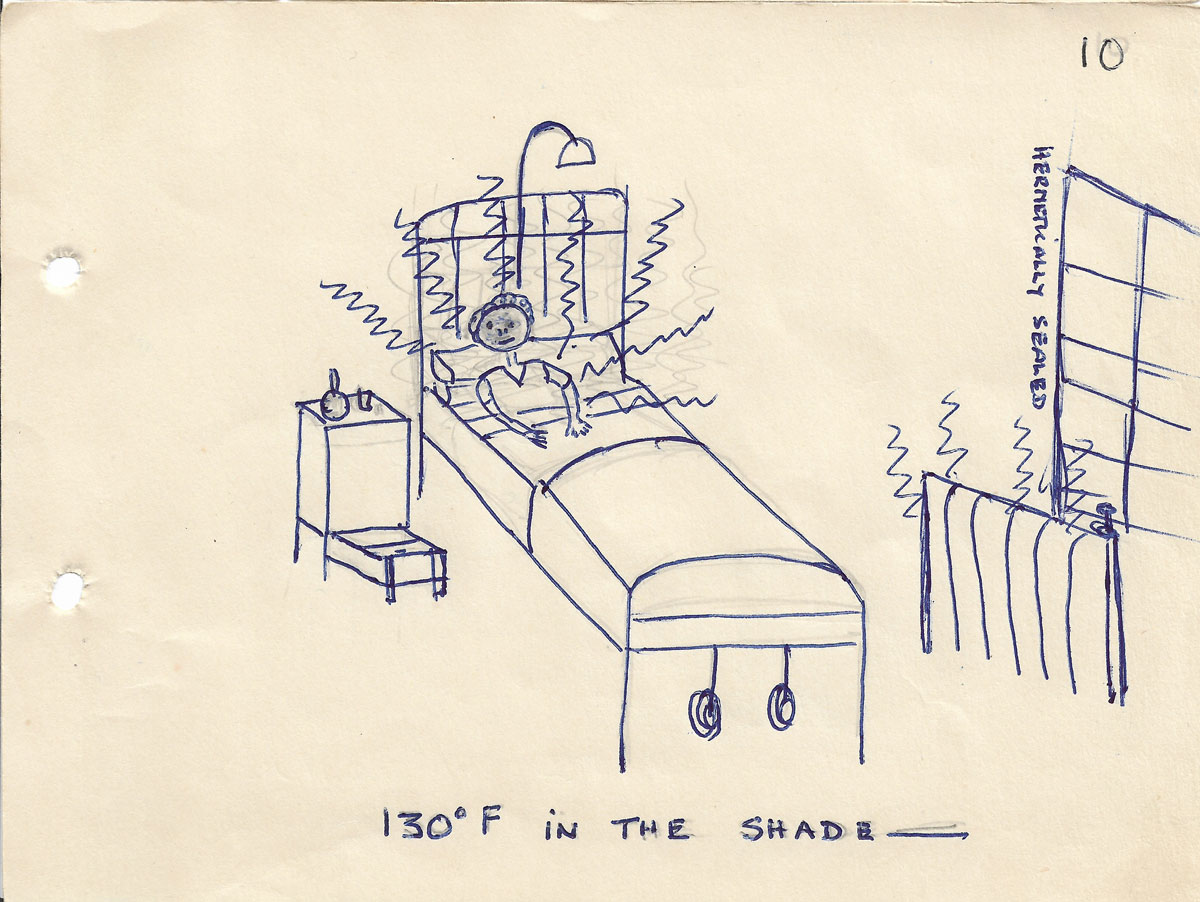 10
HERMETICALLY SEALED
130°F iN THE SHADE —